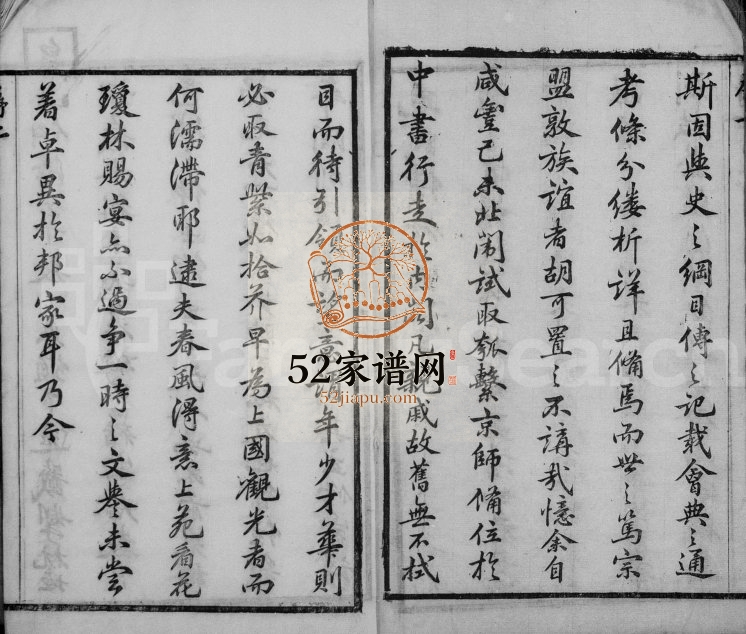 斯固與史之綱目傳之記載會典之通
考條分縷析詳且備焉而世之篤宗
盟敦族誼者胡可置之不講哉憶余自
咸豐己未北闈試取瓠繫京師備位於
中書行走於凡親戚故舊無不拭
目而待引領而年少才華則
必取青紫如拾芥早為上國觀光者而
何濡滯耶逮夫春風得意上苑看花
瓊林賜宴亦不過爭一時之文譽未嘗
著卓異於邦家耳乃今
52家谱网
52jiapu.com